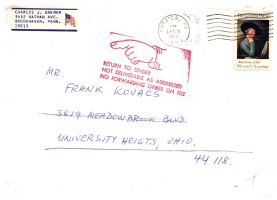 CHARLES J. KREMER
3452 NATHAN AVE.
BROOKHAVEN, PENN.
19015
PM
RETURN TO SENDER
NOT DELIVERABLE AS ADDRESSED
NO FORWARDING ORDER ON FILE
MR
FRANK KOVACS
3819 MEADOWBROOK BLVD.
UNIVERSITY HEIGTS, OHIO.
44118.